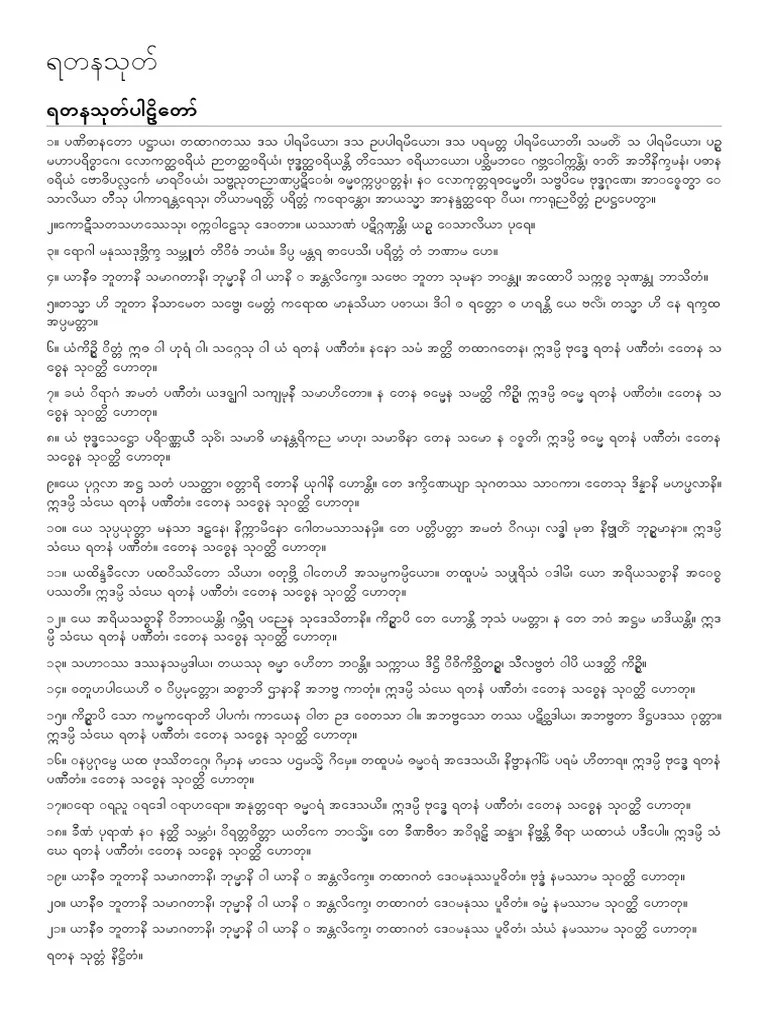 ရတနသုတ်
ရတနသုတ်ပါဠိတော်
၁။ ပဏိဓာနတော ပဋ္ဌာယ၊ တထာဂတဿ ဒသ ပါရမိယော၊ ဒသ ဥပပါရမိယော၊ ဒသ ပရမတ္ထ ပါရမိယောတိ၊ သမတိံ သ ပါရမိယော၊ ပဉ္စ
မဟာပရိစ္စာဂေ၊ လောကတ္ထစရိယံ ဉာတတ္ထစရိယံ၊ ဗုဒ္ဓတ္ထစရိယန္တိ တိဿော စရိယာယော၊ ပစ္ဆိမဘဝေ ဂဗ္ဘဝေါက္ကန္တိံ၊ ဇာတိံ အဘိနိက္ခမနံ၊ ပဓာန
စရိယံ ဗောဓိပလ္လင်္ကေ မာရဝိဇယံ၊ သဗ္ဗညုတညာဏပ္ပဋိဝေဓံ၊ ဓမ္မစက္ကပ္ပဝတ္တနံ၊ နဝ လောကုတ္တရဓမ္မေတိ၊ သဗ္ဗပိမေ ဗုဒ္ဓဂုဏေ၊ အာဝဇ္ဇေတွာ ဝေ
သာလိယာ တီသု ပါကာရန္တရေသု၊ တိယာမရတ္တိံ ပရိတ္တံ ကရောန္တော၊ အာယသ္မာ အာနန္ဒတ္ထရော ဝိယ၊ ကာရုညစိတ္တံ ဥပဋ္ဌပေတွာ။
၂။ကောဋီသတသဟဿေသု၊ စက္ကဝါဠေသု ဒေဝတာ။ ယဿာဏံ ပဋိဂ္ဂဏှန္တိ၊ ယဉ္စ ဝေသာလိယာ ပုရေ။
၃။ ရောဂါ မနုဿဒုဗ္ဘိက္ခ သမ္ဘူတံ တိဝိဓံ ဘယံ။ ခိပ္ပ မန္တရ ဓာပေသိ၊ ပရိတ္တံ တံ ဘဏာမ ဟေ။
၄။ ယာနီဓ ဘူတာနိ သမာဂတာနိ၊ ဘုမ္မာနိ ဝါ ယာနိ ဝ အန္တလိက္ခေ။ သဗ္ဗေဝ ဘူတာ သုမနာ ဘဝန္တု၊ အထောပိ သက္ကစ္စ သုဏန္တု ဘာသိတံ။
၅။တသ္မာ ဟိ ဘူတာ နိသာမေတ သဗ္ဗေ၊ မေတ္တံ ကရောထ မာနုသိယာ ပဇာယ၊ ဒိဝါ စ ရတ္တော စ ဟရန္တိ ယေ ဗလိံ၊ တသ္မာ ဟိ နေ ရက္ခထ
အပ္ပမတ္တာ။
၆။ ယံကိဉ္စိ ဝိတ္တံ ဣဓ ဝါ ဟုရံ ဝါ၊ သဂ္ဂေသု ဝါ ယံ ရတနံ ပဏီတံ။ နနော သမံ အတ္ထိ တထာဂတေန၊ ဣဒမ္ပိ ဗုဒ္ဓေ ရတနံ ပဏီတံ၊ ဧတေန သ
စ္စေန သုဝတ္ထိ ဟောတု။
၇။ ခယံ ဝိရာဂံ အမတံ ပဏီတံ၊ ယဒဇ္ဈဂါ သကျမုနီ သမာဟိတော။ န တေန ဓမ္မေန သမတ္ထိ ကိဉ္စိ၊ ဣဒမ္ပိ ဓမ္မေ ရတနံ ပဏိတံ။ ဧတေန သ
စ္စေန သုဝတ္ထိ ဟောတု။
၈။ ယံ ဗုဒ္ဓသေဋ္ဌော ပရိဝဏ္ဏယီ သုစိံ၊ သမာဓိ မာနန္တရိကည မာဟု၊ သမာဓိနာ တေန သမော န ဝဇ္ဇတိ၊ ဣဒမ္ပိ ဓမ္မေ ရတနံ ပဏီတံ၊ ဧတေန
သစ္စေန သုဝတ္ထိ ဟောတု။
၉။ယေ ပုဂ္ဂလာ အဋ္ဌ သတံ ပသတ္ထာ၊ စတ္တာရိ တောနိ ယုဂါနိ ဟောန္တိ။ တေ ဒက္ခိဏေယျာ သုဂတဿ သာဝကာ၊ ဧတေသု ဒိန္နာနိ မဟပ္ဖလာနိ။
ဣဒမ္ပိ သံဃေ ရတနံ ပဏီတံ။ ဧတေန သစ္စေန သုဝတ္ထိ ဟောတု။
၁၀။ ယေ သုပ္ပယုတ္တာ မနသာ ဒဠှေန၊ နိက္ကာမိနော ဂေါတမသာသနမှိ။ တေ ပတ္တိပတ္တာ အမတံ ဝိဂယှ၊ လဒ္ဓါ မုဓာ နိဗ္ဗုတိံ ဘုဉ္စမာနာ။ ဣဒမ္ပိ
သံဃေ ရတနံ ပဏီတံ။ ဧတေန သစ္စေန သုဝတ္ထိ ဟောတု။
၁၁။ ယထိန္ဒခီလော ပထဝိဿိတော သိယာ၊ စတုဗ္ဘိ ဝါတေဟိ အသမ္ပကမ္ပိယော။ တထူပမံ သပ္ပုရိသံ ဝဒါမိ၊ ယော အရိယသစ္စာနိ အဝေစ္စ
ပဿတိ။ ဣဒမ္ပိ သံဃေ ရတနံ ပဏီတံ။ ဧတေန သစ္စေန သုဝတ္ထိ ဟောတု။
၁၂။ ယေ အရိယသစ္စာနိ ဝိဘာဝယန္တိ၊ ဂမ္ဘီရ ပညေန သုဒေသိတာနိ။ ကိဉ္စာပိ တေ ဟောန္တိ ဘုသံ ပမတ္တာ၊ န တေ ဘဝံ အဋ္ဌမ မာဒိယန္တိ။ ဣဒ
မ္ပိ သံဃေ ရတနံ ပဏီတံ၊ ဧတေန သစ္စေန သုဝတ္ထိ ဟောတု။
၁၃။ သဟာဝဿ ဒဿနသမ္ပဒါယ၊ တယဿု ဓမ္မာ ဇဟိတာ ဘဝန္တိ။ သက္ကာယ ဒိဋ္ဌိ ဝိစိကိစ္ဆိတဉ္စ၊ သီလဗ္ဗတံ ဝါပိ ယဒတ္ထိ ကိဉ္စိ။
၁၄။ စတူဟပါယေဟိ စ ဝိပ္ပမုတ္တော၊ ဆစ္စာဘိ ဌာနာနိ အဘဗ္ဗ ကာတုံ။ ဣဒမ္ပိ သံဃေ ရတနံ ပဏီတံ၊ ဧတေန သစ္စေန သုဝတ္ထိ ဟောတု။
၁၅။ ကိဉ္စာပိ သော ကမ္မကရောတိ ပါပကံ၊ ကာယေန ဝါတ ဥဒ စေတသာ ဝါ။ အဘဗ္ဗသော တဿ ပဋိစ္ဆဒါယ၊ အဘဗ္ဗတာ ဒိဋ္ဌပဒဿ ဝုတ္တာ။
ဣဒမ္ပိ သံဃေ ရတနံ ပဏီတံ။ ဧတေန သစ္စေန သုဝတ္ထိ ဟောတု။
၁၆။ ဝနပ္ပဂုမ္ဗေ ယထ ဖုဿိတဂ္ဂေ၊ ဂိမှာန မာသေ ပဌမသ္မိံ ဂိမှေ။ တထူပမံ ဓမ္မဝရံ အဒေသယိ၊ နိဗ္ဗာနဂါမိံ ပရမံ ဟိတာရ။ ဣဒမ္ပိ ဗုဒ္ဓေ ရတနံ
ပဏီတံ။ ဧတေန သစ္စေန သုဝတ္ထိ ဟောတု။
၁၇။ဝရော ဝရညူ ဝရဒေါ ဝရာဟရော။ အနုတ္တရော ဓမ္မဝရံ အဒေသယိ။ ဣဒမ္ပိ ဗုဒ္ဓေ ရတနံ ပဏီတံ၊ ဧတေန သစ္စေန သုဝတ္ထိ ဟောတု။
၁၈။ ခီဏံ ပုရာဏံ နဝ နတ္ထိ သမ္ဘဝံ၊ ဝိရတ္တစိတ္တာ ယတိကေ ဘဝသ္မိံ။ တေ ခီဏဗီဇာ အဝိရုဠှိ ဆန္ဒာ၊ နိဗ္ဗန္တိ ဓီရာ ယထာယံ ပဒီပေါ။ ဣဒမ္ပိ သံ
ဃေ ရတနံ ပဏီတံ၊ ဧတေန သစ္စေန သုဝတ္ထိ ဟောတု။
၁၉။ ယာနီဓ ဘူတာနိ သမာဂတာနိ၊ ဘုမ္မာနိ ဝါ ယာနိ ဝ အန္တလိက္ခေ။ တထာဂတံ ဒေဝမနုဿပူဇိတံ။ ဗုဒ္ဓံ နမဿာမ သုဝတ္ထိ ဟောတု။
၂၀။ ယာနီဓ ဘူတာနိ သမာဂတာနိ၊ ဘုမ္မာနိ ဝါ ယာနိ ဝ အန္တလိက္ခေ၊ တထာဂတံ ဒေဝမနုဿ ပူဇိတံ။ ဓမ္မံ နမဿာမ သုဝတ္ထိ ဟောတု။
၂၁။ ယာနီဓ ဘူတာနိ သမာဂတာနိ၊ ဘုမ္မာနိ ဝါ ယာနိ ဝ အန္တလိက္ခေ၊ တထာဂတံ ဒေဝမနုဿ ပူဇိတံ၊ သံဃံ နမဿာမ သုဝတ္ထိ ဟောတု။
ရတန သုတ္တံ နိဋ္ဌိတံ။